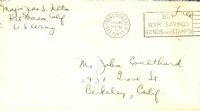 Major Jess S. Wells
Calif
U.S. Army
BUY
WAR SAVINGS
BONDS AND STAMPS
Mr. John Coulthard
2931 Grove St.
Berkeley, Calif.